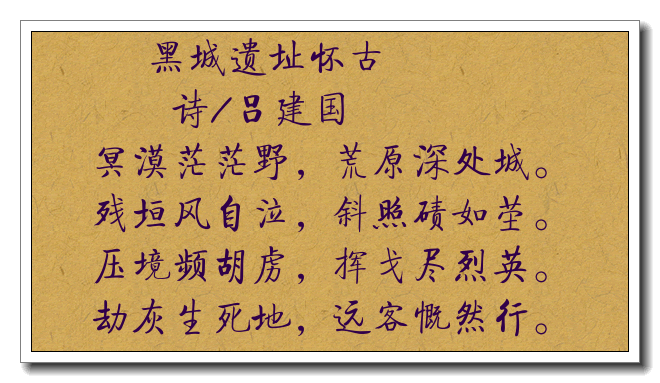 黑城遗址怀古
诗/吕建国
冥漠茫茫野，荒原深处城。
残垣风自泣，斜照碛如茔。
压境频胡虏，挥戈尽烈英。
劫灰生死地，远客慨然行。